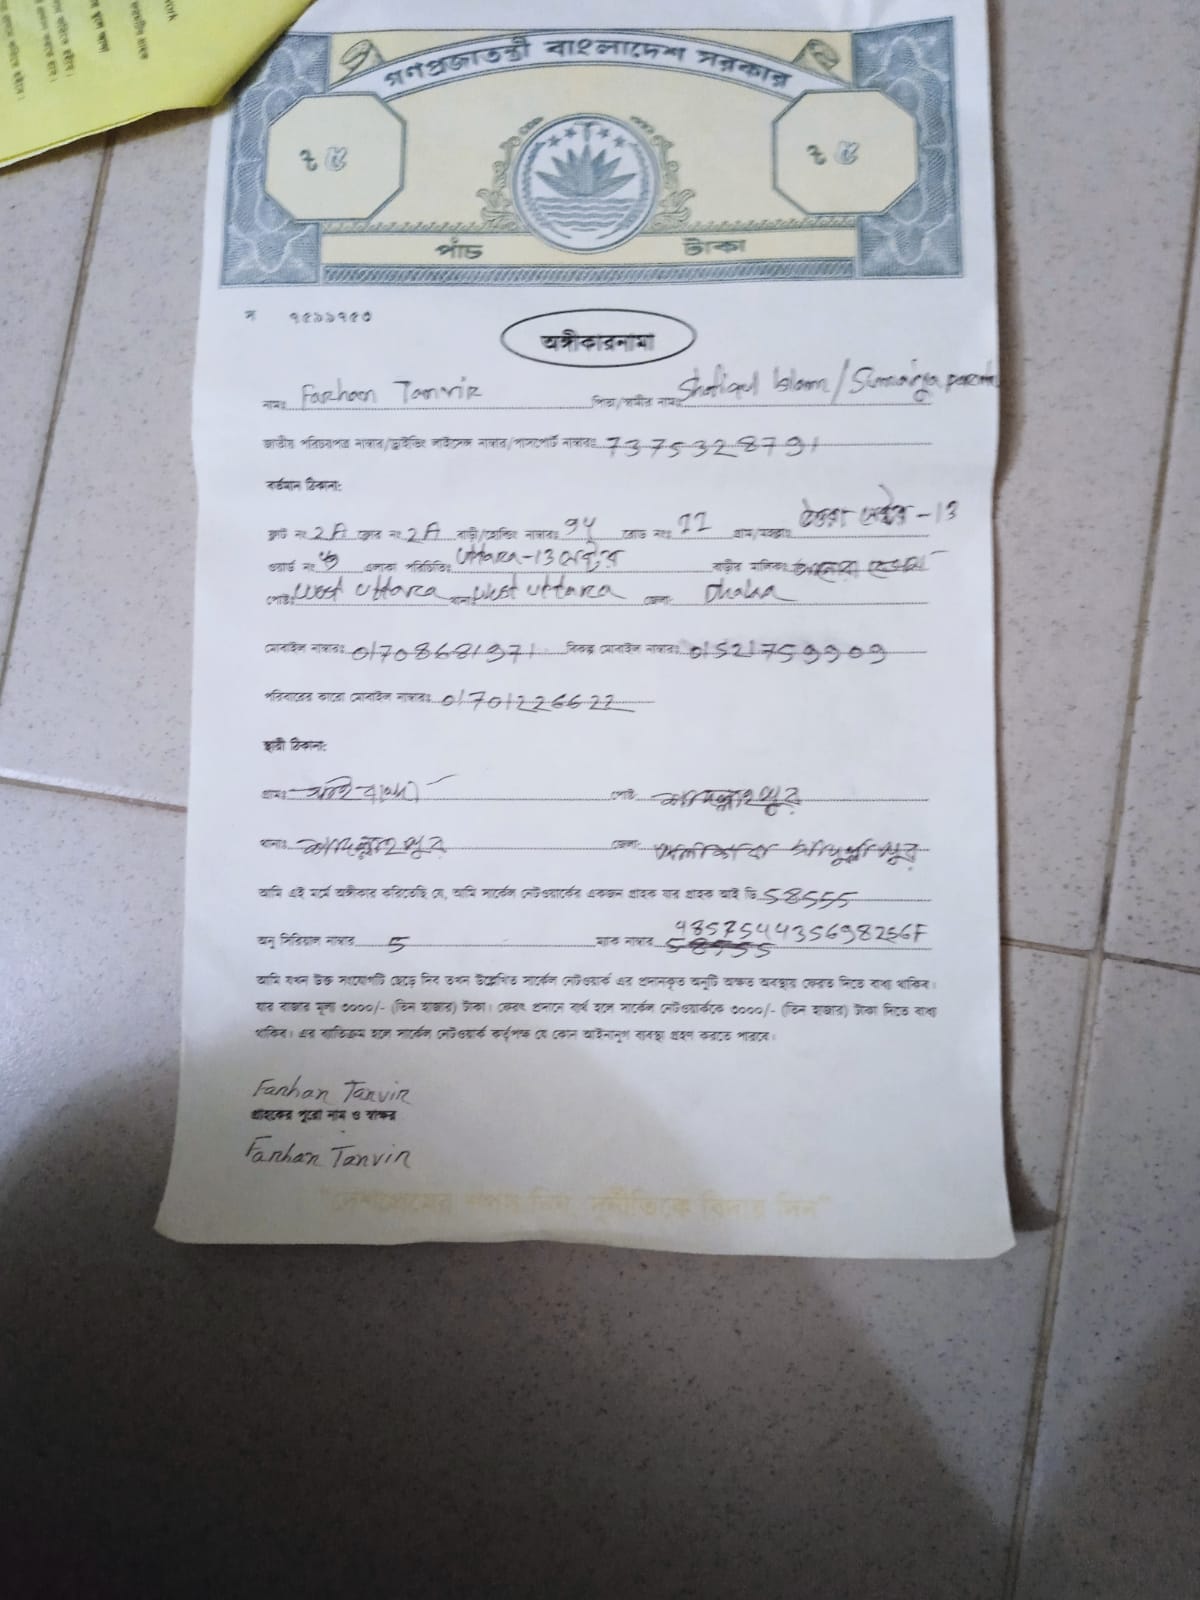 গণপ্রজাতন্ত্রী বাংলাদেশ সরকার
৳ ৫ ৳ ৫
পাঁচ টাকা
স ৭৫৯৯৭৫৩
অঙ্গীকারনামা
নামঃ Farhan Tanvir পিতা/স্বামীর নামঃ Shafiqul Islam /
জাতীয় পরিচয়পত্র নাম্বার/ড্রাইভিং লাইসেন্স নাম্বার/পাসপোর্ট নাম্বারঃ 7375328791
বর্তমান ঠিকানা:
ফ্লাট নং 2A ফ্লোর নং 2A বাড়ী/হোল্ডিং নাম্বারঃ রোড নংঃ 11 গ্রাম/মহল্লাঃ উত্তরা সেক্টর - 13
ওয়ার্ড নং এলাকা পরিচিতিঃ Uttara-13 সেক্টর বাড়ীর মালিকঃ
পোষ্টঃ West Uttara থানাঃ West Uttara জেলা: Dhaka
মোবাইল নাম্বারঃ 01708681971 বিকল্প মোবাইল নাম্বারঃ 01521759909
পরিবারের কারো মোবাইল নাম্বারঃ 01701226622
স্থায়ী ঠিকানা:
গ্রামঃ পোষ্ট
থানাঃ জেলা:
আমি এই মর্মে অঙ্গীকার করিতেছি যে, আমি সার্কেল নেটওয়ার্কের একজন গ্রাহক যার গ্রাহক আই ডি 58555
অনু সিরিয়াল নাম্বার 5 ম্যাক নাম্বার
আমি যখন উক্ত সংযোগটি ছেড়ে দিব তখন উল্লেখিত সার্কেল নেটওয়ার্ক এর প্রদানকৃত অনুটি অক্ষত অবস্থায় ফেরত দিতে বাধ্য থাকিব।
যার বাজার মূল্য ৩০০০/- (তিন হাজার) টাকা। ফেরৎ প্রদানে ব্যর্থ হলে সার্কেল নেটওয়ার্ককে ৩০০০/- (তিন হাজার) টাকা দিতে বাধ্য
থাকিব। এর ব্যতিক্রম হলে সার্কেল নেটওয়ার্ক কর্তৃপক্ষ যে কোন আইনানুগ ব্যবস্থা গ্রহণ করতে পারবে।
Farhan Tanvir
গ্রাহকের পুরো নাম ও স্বাক্ষর
Farhan Tanvir
"দেশপ্রেমের শপথ নিন, দুর্নীতিকে বিদায় দিন"